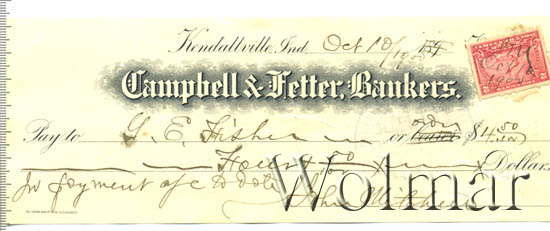 Kendallville, Ind. Oct 10/1900 189
Campbell & Fetter, Bankers.
Pay to G. E. Fisher or order bearer $4.50
Four & 50 Dollars
In payment of
John Mitchell
Wolmar